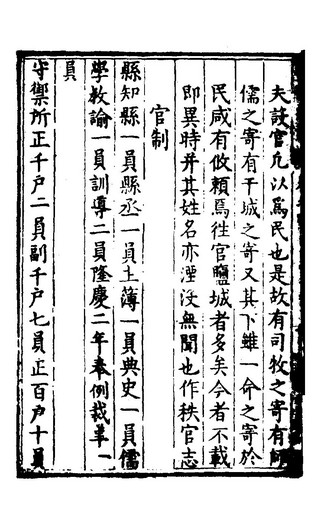 夫設官凡以爲民也是故有司牧之寄有師
儒之寄有干城之寄又其下雖一命之寄於
民咸有攸賴焉往官鹽城者多矣今者不載
即異時并其姓名亦湮没無聞也作秩官志
官制
縣知縣一員縣丞一員主簿一員典史一員儒
學教諭一員訓導二員隆慶二年奉例裁革一
員
守禦所正千户二員副千户七員正百户十員